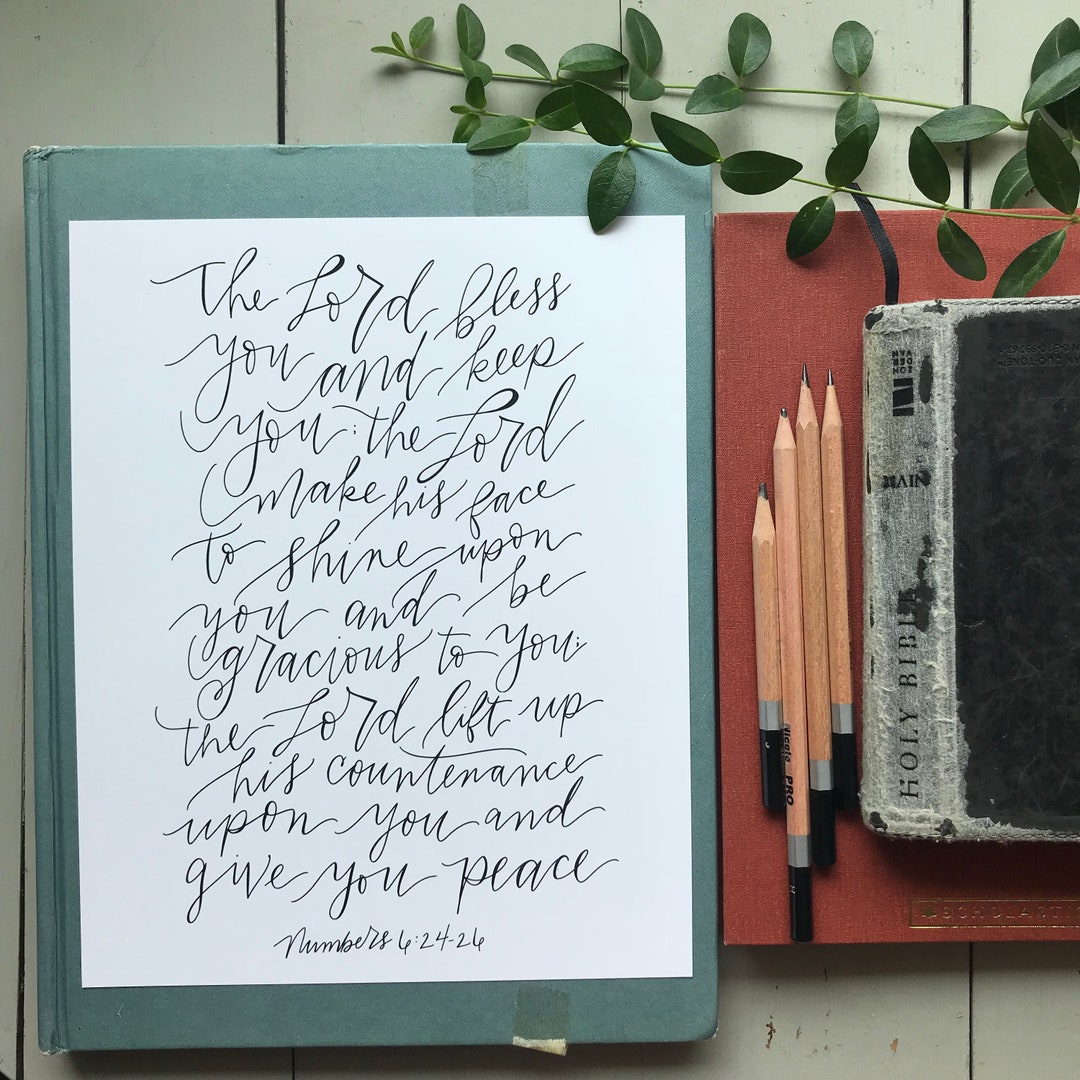 The Lord bless
you and keep
you: the Lord
make his face
to shine upon
you and be
gracious to you;
the Lord lift up
his countenance
upon you and
give you peace
Numbers 6:24-26
ZON
DER
VAN
NIV
HOLY BIBLE
Nicole PRO
H
SCHOLARTI